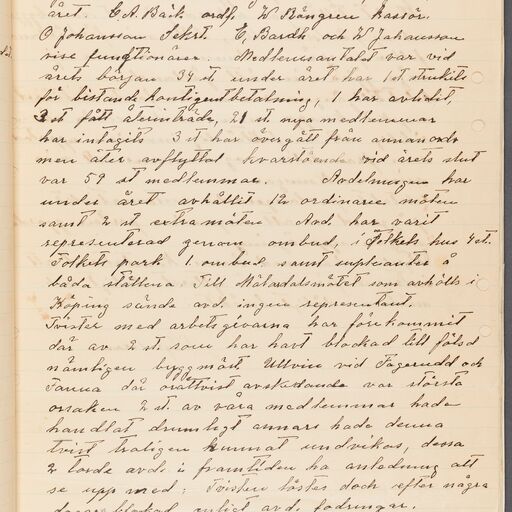 året. C. A. Bäck ordf, W Röngren kassör.
O Johansson Sekrt. E, Bardh och W Johansson
vise funktionärer. Medlemsantalet var vid
årets början 34 st under året har 1 st strukits
för bistande kontigentbetalning, 1 har avlidit,
3 st fått återinträde, 21 st nya medlemmar
har intagits 3 st har övergått från annan ords
men åter avflyttat kvarstående vid årets slut
var 59 st medlemmar. Avdelningen har
under året avhållit 12 ordinarie möten
samt 2 st extra möten Avd. har varit
representerad genom ombud, i Folkets hus 4 st.
Folkets park 1 ombud samt supleanter å
båda ställena Till Mälardalsmötet som avhölls i
Köping sände avd. ingen representant.
Tvister med arbetsgivarna har förekommit
där av 2 st. som har haft blockad till följd
nämligen byggmäst Uttvin vid Fagerudd och
Tanna där orättvist avskedande var största
orsaken 2 st. av våra medlemmar hade
handlat drumligt annars hade denna
tvist troligen kunnat undvikas, dessa
2 torde avd. i framtiden ha anledning att
se upp med; Tvisten löstes dock efter några
dagars blockad enligt avd. fodringar.